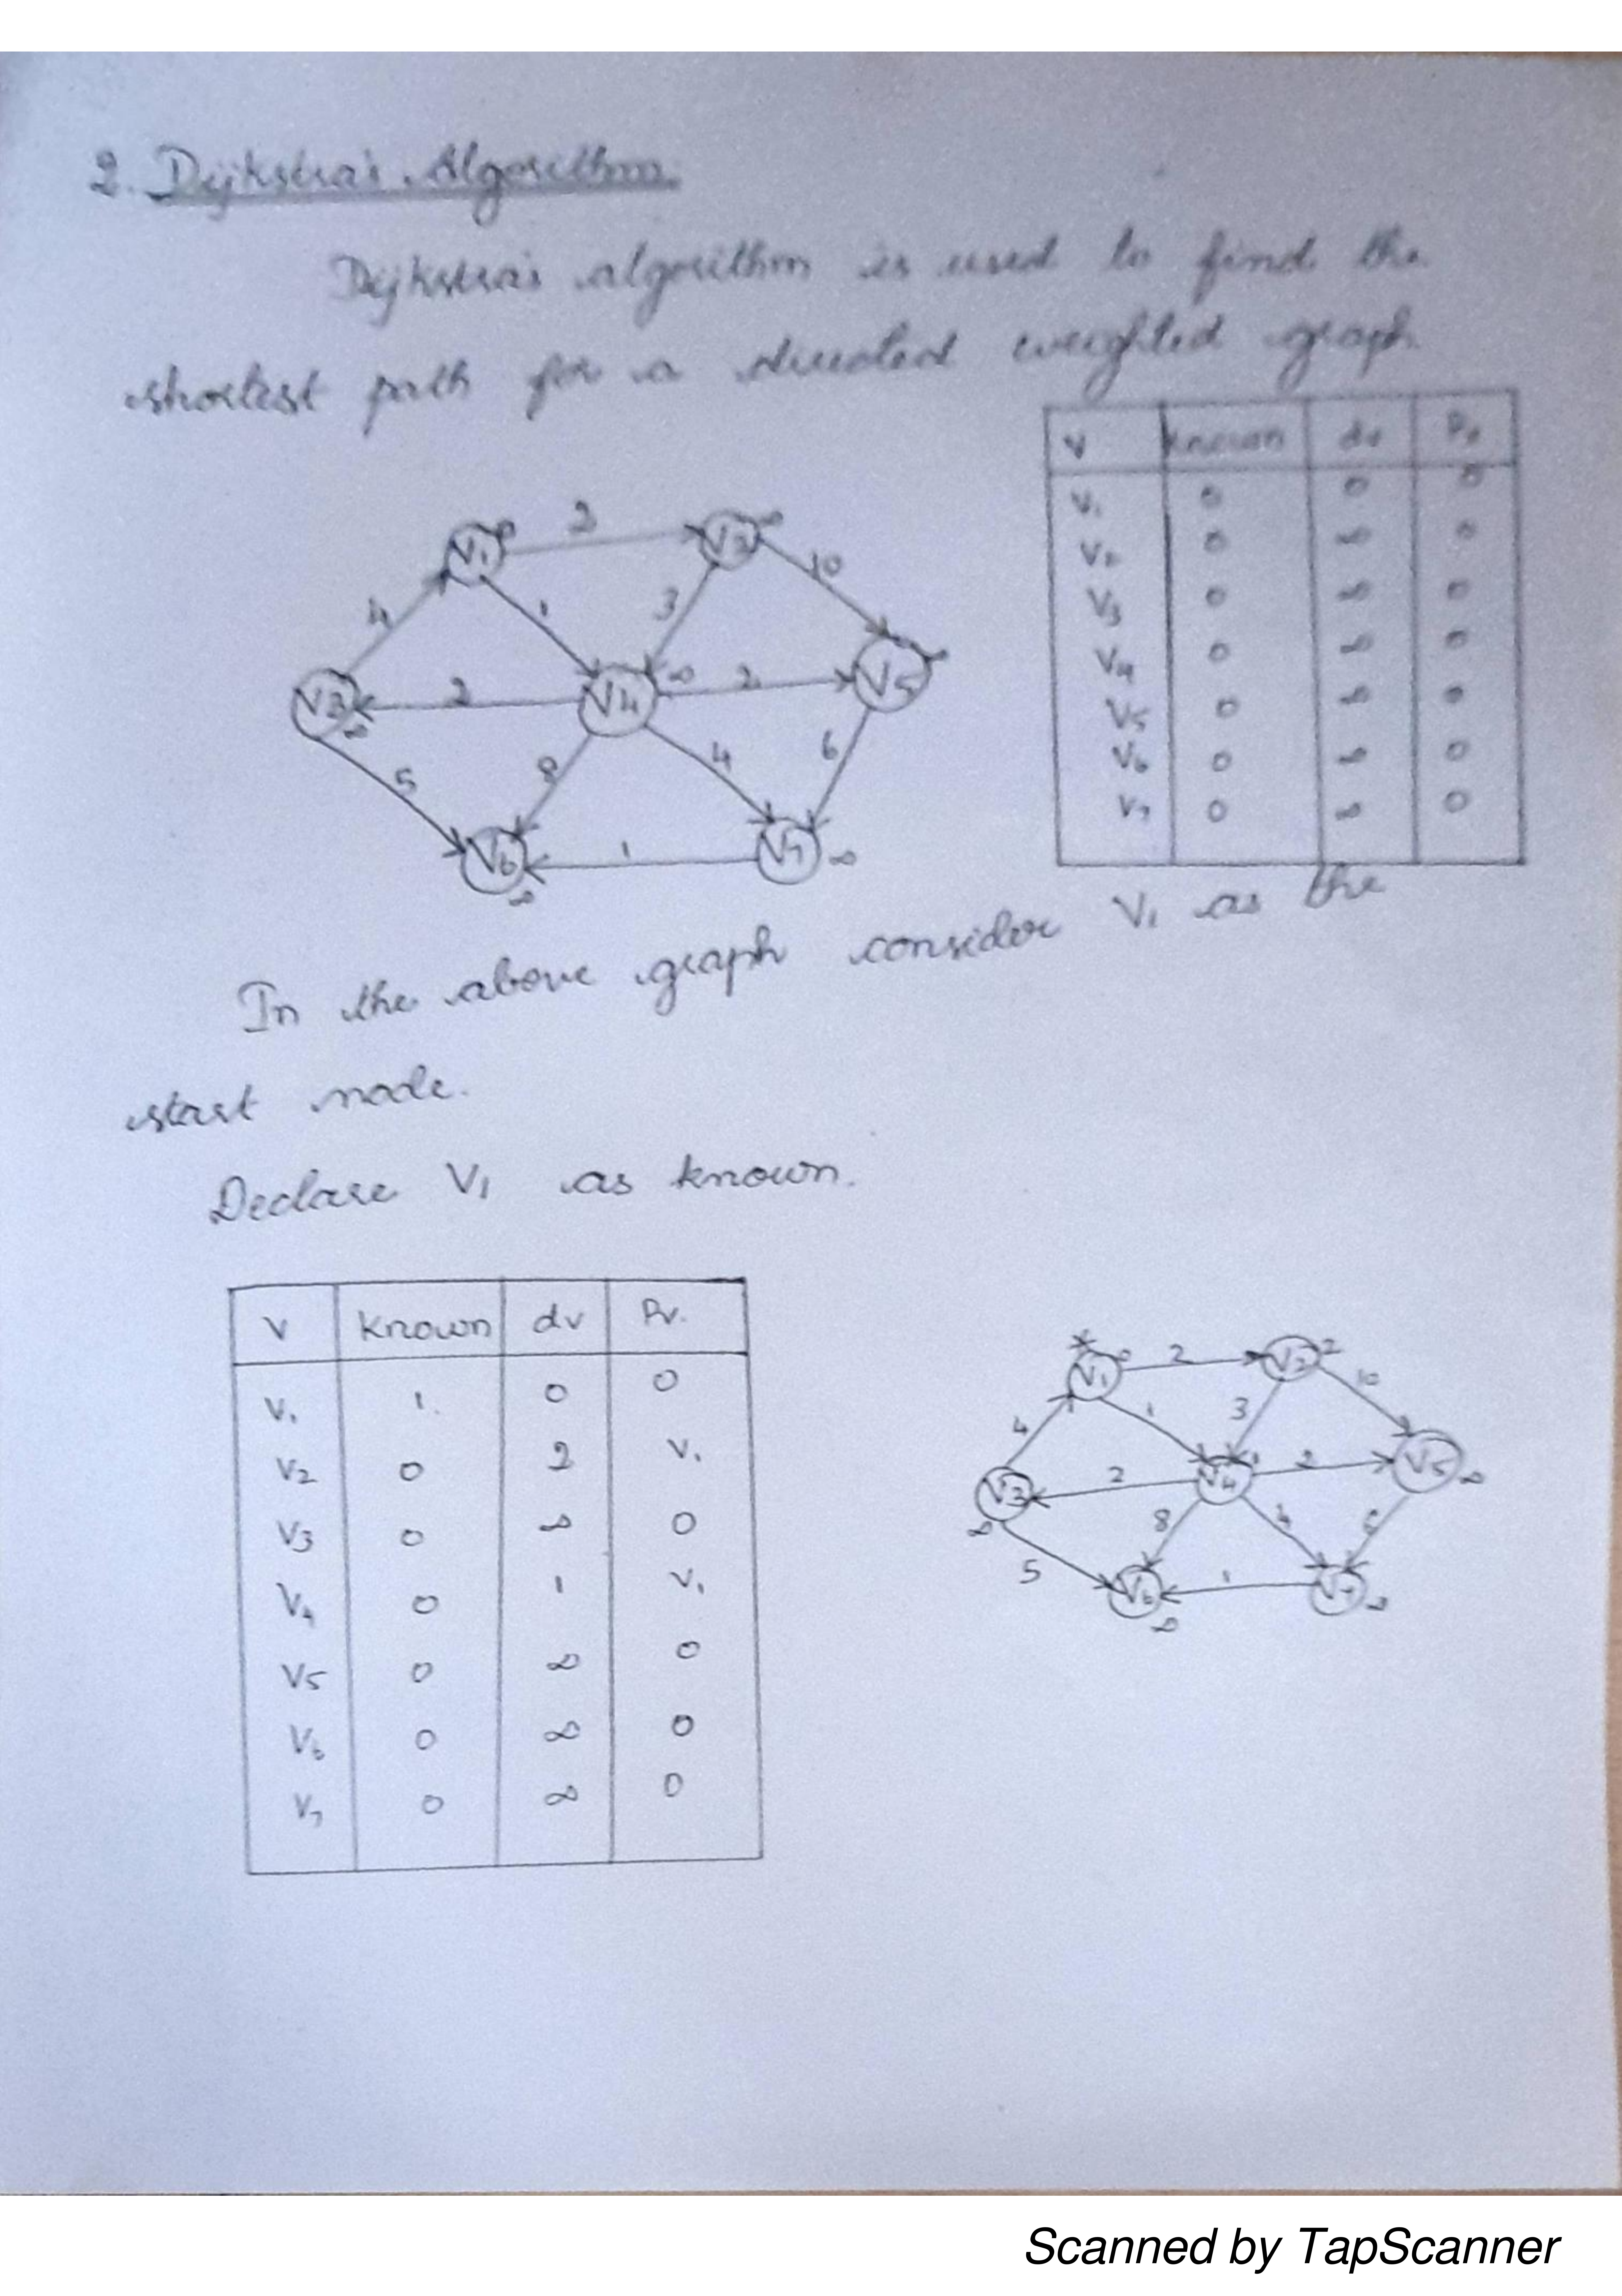 2. Dijkstra's Algorithm.
Dijkstra's algorithm is used to find the
shortest path for a directed weighted graph.
V known dv Pv
V1 0 0 0
V2 0 ∞ 0
V3 0 ∞ 0
V4 0 ∞ 0
V5 0 ∞ 0
V6 0 ∞ 0
V7 0 ∞ 0
V1 0 2 V2 ∞
10
4 1 3
V3 ∞ 2 V4 ∞ 2 V5 ∞
5 8 4 6
V6 ∞ 1 V7 ∞
In the above graph consider V1 as the
start node.
Declare V1 as known.
V known dv Pv.
V1 1 0 0
V2 0 2 V1
V3 0 ∞ 0
V4 0 1 V1
V5 0 ∞ 0
V6 0 ∞ 0
V7 0 ∞ 0
*
V1 0 2 V2 2
10
4 1 3
V3 ∞ 2 V4 1 2 V5 ∞
5 8 4 6
V6 ∞ 1 V7 ∞
Scanned by TapScanner